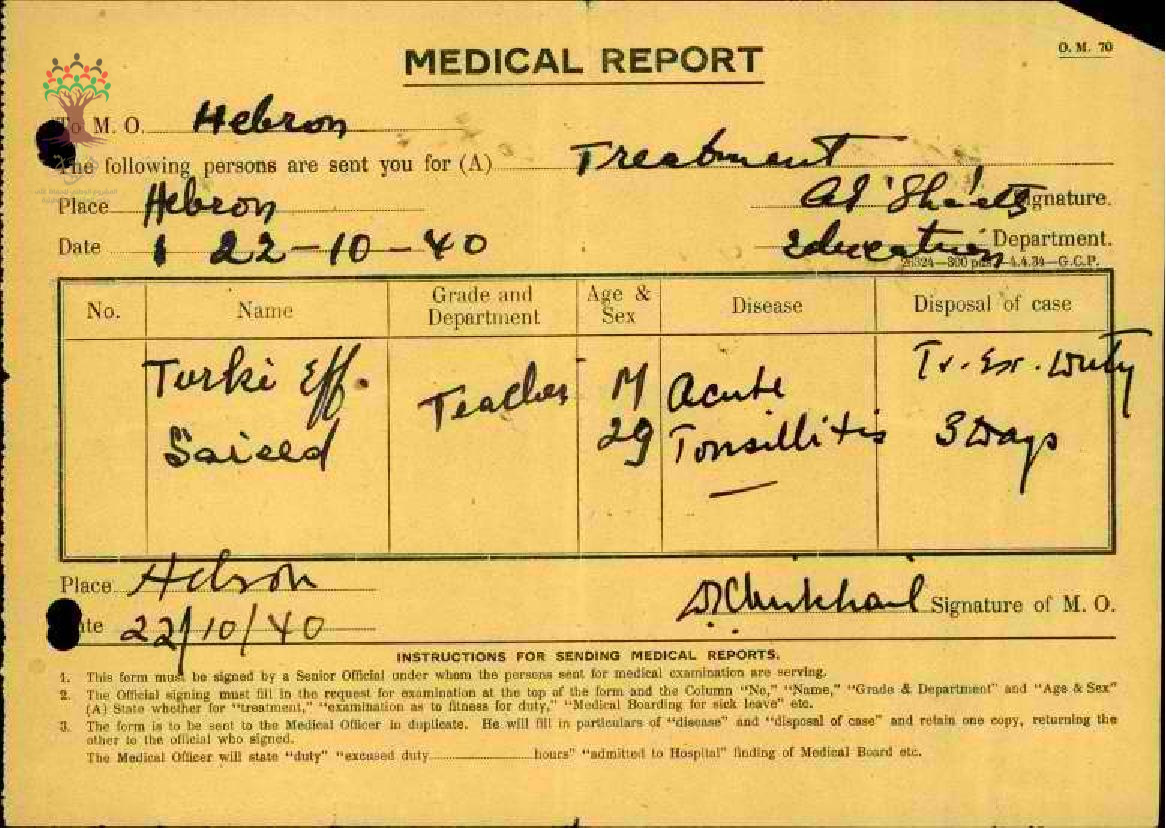 MEDICAL REPORT
O. M. 70
To M. O. Hebron
The following persons are sent you for (A) Treatment
Place Hebron
Signature.
Date 22-10-40
Education Department.
4.4.34—G.C.P.
No. Name Grade and Department Age & Sex Disease Disposal of case
Turki Eff. Teacher M Acute Tr. Ex. Duty
Saieed 29 Tonsillitis 3 Days
Place Hebron
Signature of M. O.
Date 22/10/40
INSTRUCTIONS FOR SENDING MEDICAL REPORTS.
1. This form must be signed by a Senior Official under whom the persons sent for medical examination are serving.
2. The Official signing must fill in the request for examination at the top of the form and the Column “No,” “Name,” “Grade & Department” and “Age & Sex”
(A) State whether for “treatment,” “examination as to fitness for duty,” “Medical Boarding for sick leave” etc.
3. The form is to be sent to the Medical Officer in duplicate. He will fill in particulars of “disease” and “disposal of case” and retain one copy, returning the
other to the official who signed.
The Medical Officer will state “duty” “excused duty hours” “admitted to Hospital” finding of Medical Board etc.